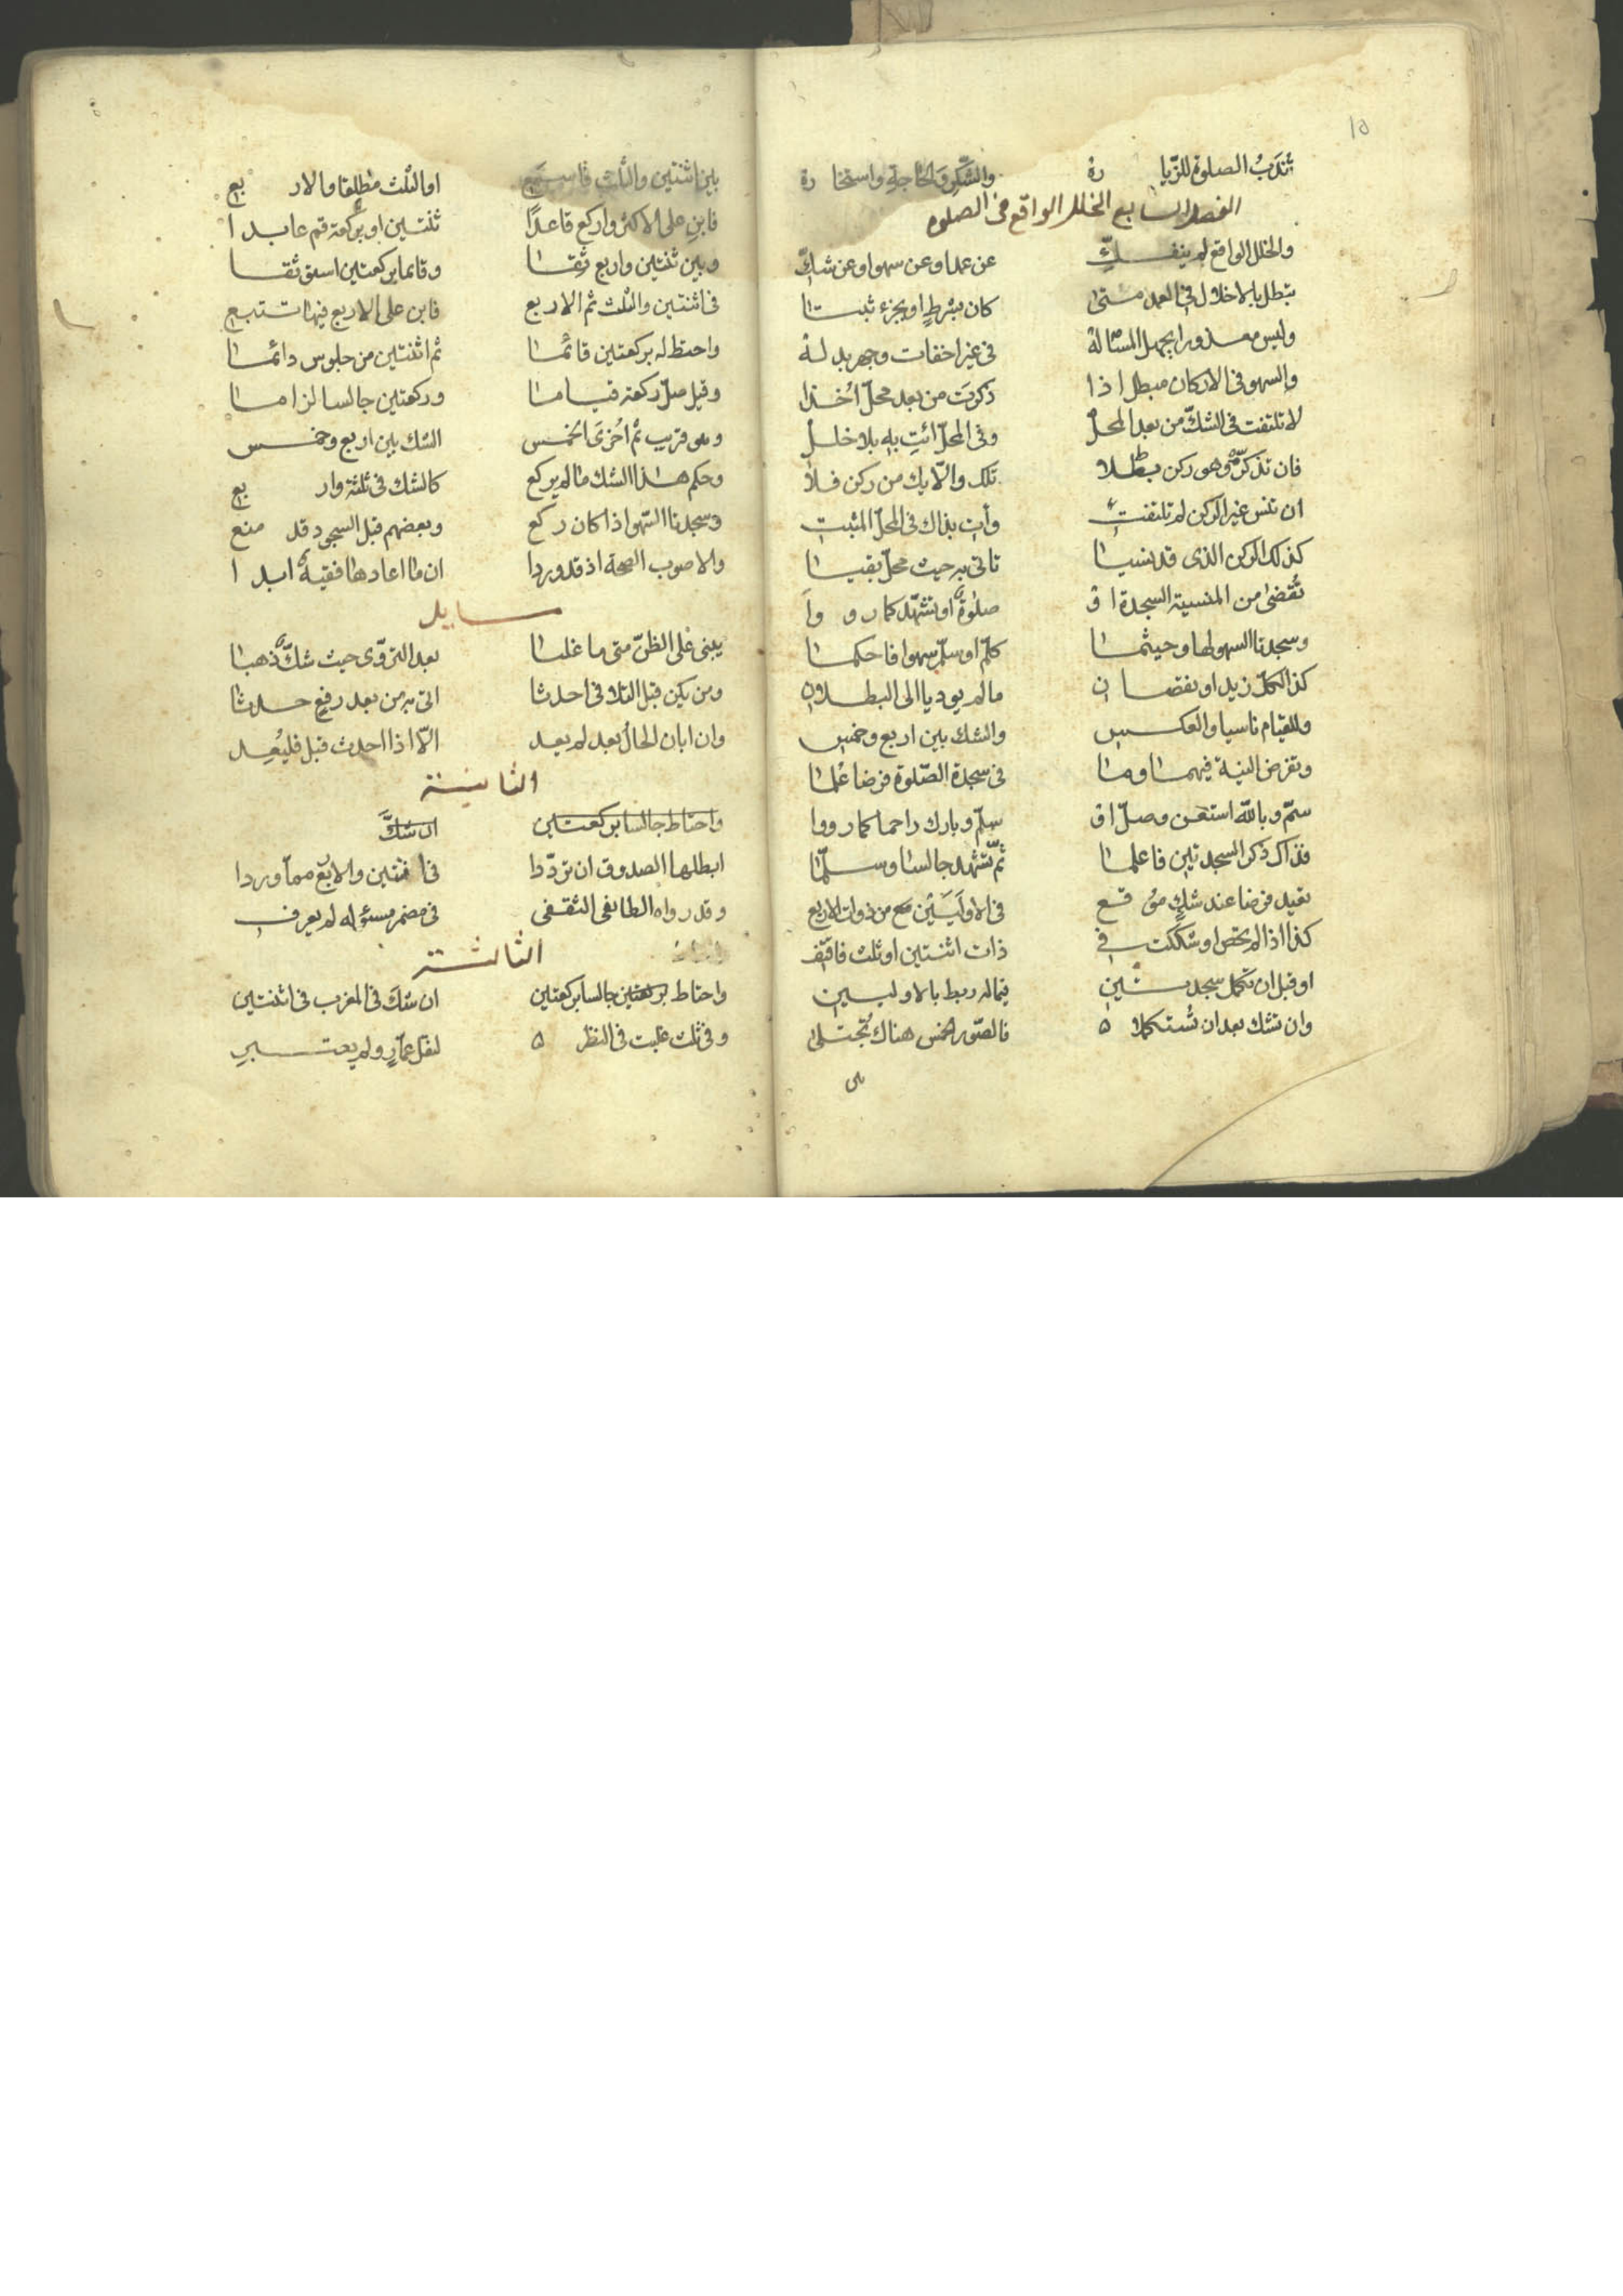 ١٥
تُندَبُ الصلوة للزّيارة والشكر والحاجة واستخارة
الفصل السابع الخلل الواقع في الصلوة
والخلل الواقع لم ينفكّ عن عمد او عن سهو او عن شكّ
تبطل بالاخلال في العمد متى كان بشرطٍ او بجزء ثبتا
وليس معذورا بجهل المسألة في غير اخفات وجهر بدله
والسهو في الاركان مبطل اذا ذكرت من بعد محلّ اُخذا
لا تلتفت في الشكّ من بعد المحلّ وفي المحلّ ائتِ به بلا خلل
فان تذكرّ وهو ركن بطلا تلك والّا يك من ركن فلا
ان تنس غير الركن لم تلتفت وأت بذاك في المحلّ المثبت
كذلك الركن الذي قد نسيا تاتي به حيث محلّ بقيا
تُقضى من المنسية السجدة او صلوة او تشهّد كما رووا
وسجدتا السهو لها وحيثما كلّم او سلّم سهوا فاحكما
كذا لكلّ زيد او نقصان ما لم يوديا الى البطلان
وللقيام ناسيا والعكس والشك بين اربع وخمس
وتفرض النية فيهما وما في سجدة الصّلوة فرضا عُلما
سمّ وبالله استعن وصلّ او سلّم وبارك راحما كما رووا
فذاك ذكر السجدتين فاعلما ثمّ تشهد جالسا وسلّما
تعيد فرضا عند شكٍ موقع في الاوليين مع من ذوات الاربع
كذا اذا لم تحص او شككت في ذات اثنتين او ثلث فاقتف
او قبل ان تكمل سجدتين فيما له ربط بالاوليين
وان تشك بعد ان تستكملا ٥ فالصّور الخمس هناك تُجتلى
بين
بين اثنتين والثلث فاسمع او الثلث مطلقا والاربع
فابنِ على الاكثر واركع قاعدًا ثنتين او بركعة قم عابدا
وبين ثنتين واربع ثقا وقائما بركعتين استوثقا
في اثنتين والثلث ثم الاربع فابن على الاربع فيها تتبع
واحتط له بركعتين قائما ثم اثنتين من جلوس دائما
وقيل صلّ ركعة قياما وركعتين جالسا لزاما
وهو قريب ثم اُخرى الخمس الشك بين اربع وخمس
وحكم هذا الشك ما لم يركع كالشك في ثلثة واربع
وسجدتا السّهو اذا كان ركع وبعضهم قبل السجود قد منع
والاصوب الصحة اذ قد وردا ان ما اعادها فقيه ابدا
مسايل
يبنى على الظنّ متى ما غلبا بعد التروّي حيث شكّ ذهبا
ومن يكن قبل التلافي احدثا اتى به من بعد رفع حدثا
وان ابان الحال بعد لم يعد الّا اذا احدث قبل فليُعِد
الثانية
واحتاط جالسا بركعتين ان شكّ
ابطلها الصدوق ان تردّدا في اثنتين والاربع مما وردا
وقد رواه الطائفي الثقفي في مضمر مسئوله لم يعرف
الثالثة
واحتاط بركعتين جالسا بركعتين ان شك في المغرب في اثنتين
وفي ثلث غلبت في النظر ٥ لنقل عمّار ولم يعتبر